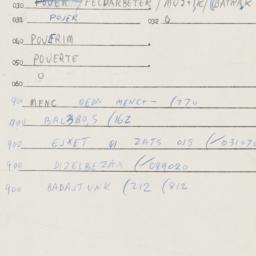 030 POYER / FELDARBETER / MUZHIK / BATRAK
031 POYER 032 0
040 POVERIM
050 POVERTE
060 0
900 MENC DEDN MENC+- (770
900 BALEBOS (162
900 EJKET DI ZATS OIS (/031070
900 DIZELBE ZAX (/089020
900 BADAJTUNK (212 (812